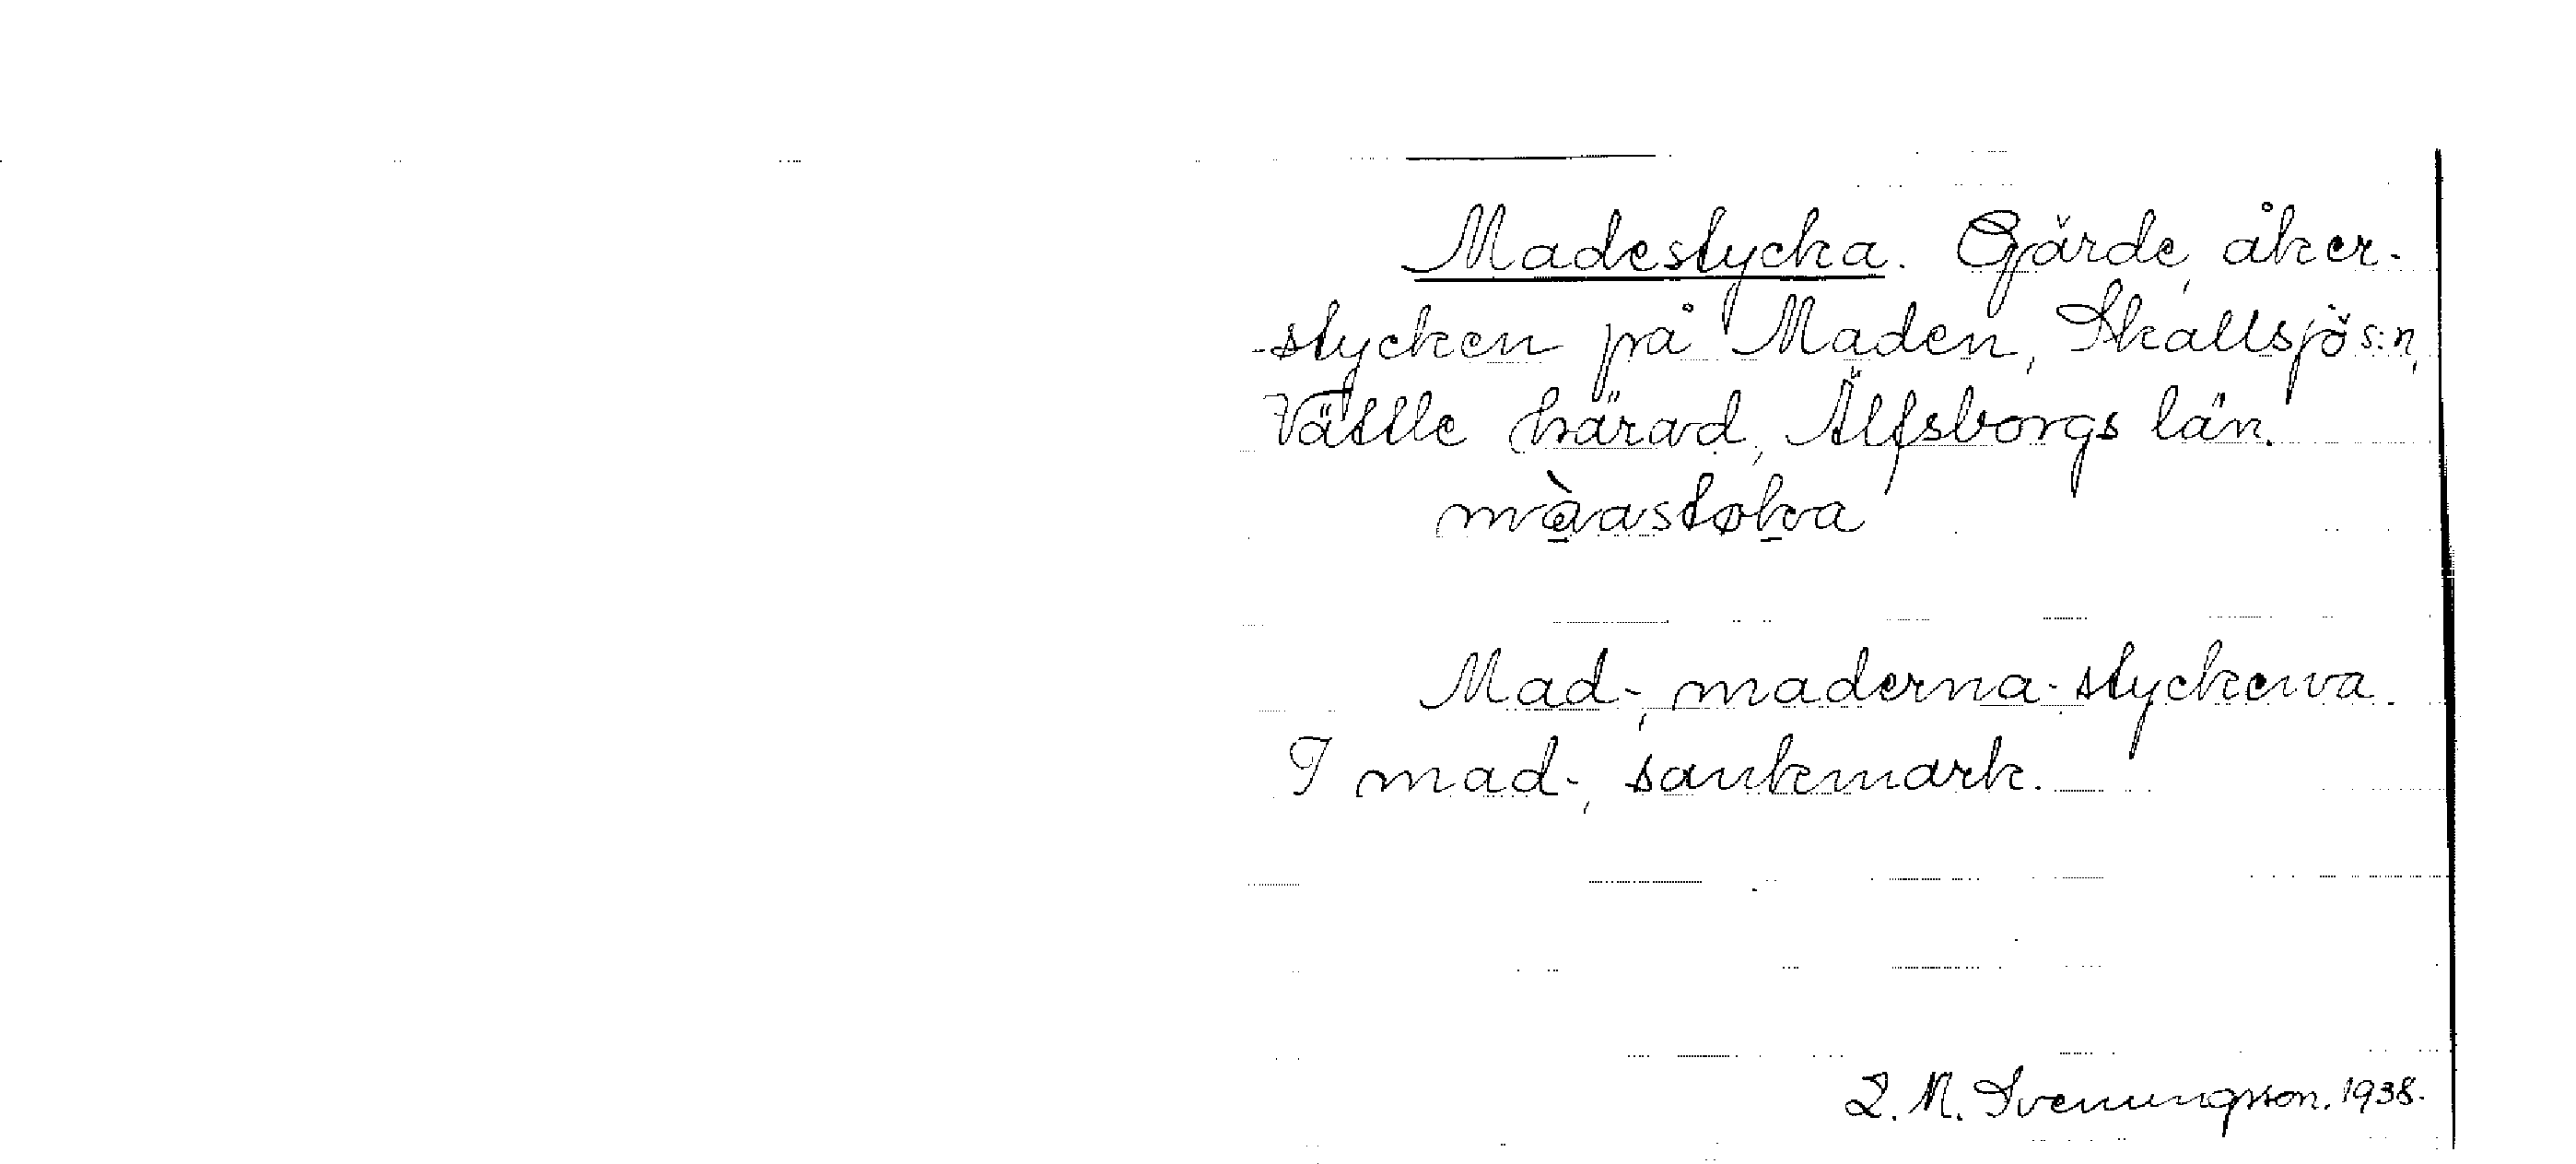 Madestycka. Gärde, åker-
-stycken på Maden, Skallsjö s:n,
Vättle härad, Älfsborgs län.
màastøka
Mad-, maderna-styckena.
I mad-, sankmark.
L. N. Svenungsson. 1938.